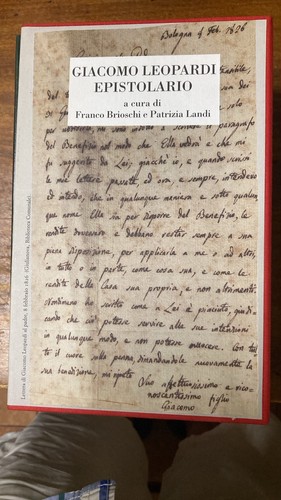 Bologna 8 Feb. 1826
GIACOMO LEOPARDI
EPISTOLARIO
a cura di
Franco Brioschi e Patrizia Landi
del Benefizio nel modo che Ella vedrà e che mi
fu suggerito da Lei; giacchè io, e quando scrissi
le mie lettere passate, ed ora, e sempre, intendevo
ed intendo, che in qualunque maniera e sotto qualun
que nome Ella sia per disporre del Benefizio, le
rendite dovessero e debbano restar sempre a sua
piena disposizione, per applicarle a me o ad altri,
in tutto o in parte, come cosa sua, e come le
rendite della Casa sua propria, e non altrimenti.
ho scritto come a Lei è piaciuto, giudi
cando che ciò potesse servire alle sue intenzioni
in qualunque modo, e non potesse nuocere. Con tut
to il cuore sulla penna, dimandandole nuovamente la
sua benedizione, mi ripeto
Suo affettuosissimo e rico-
noscentissimo figlio
Giacomo
Lettera di Giacomo Leopardi al padre, 8 febbraio 1826 (Collezione, Biblioteca Comunale)